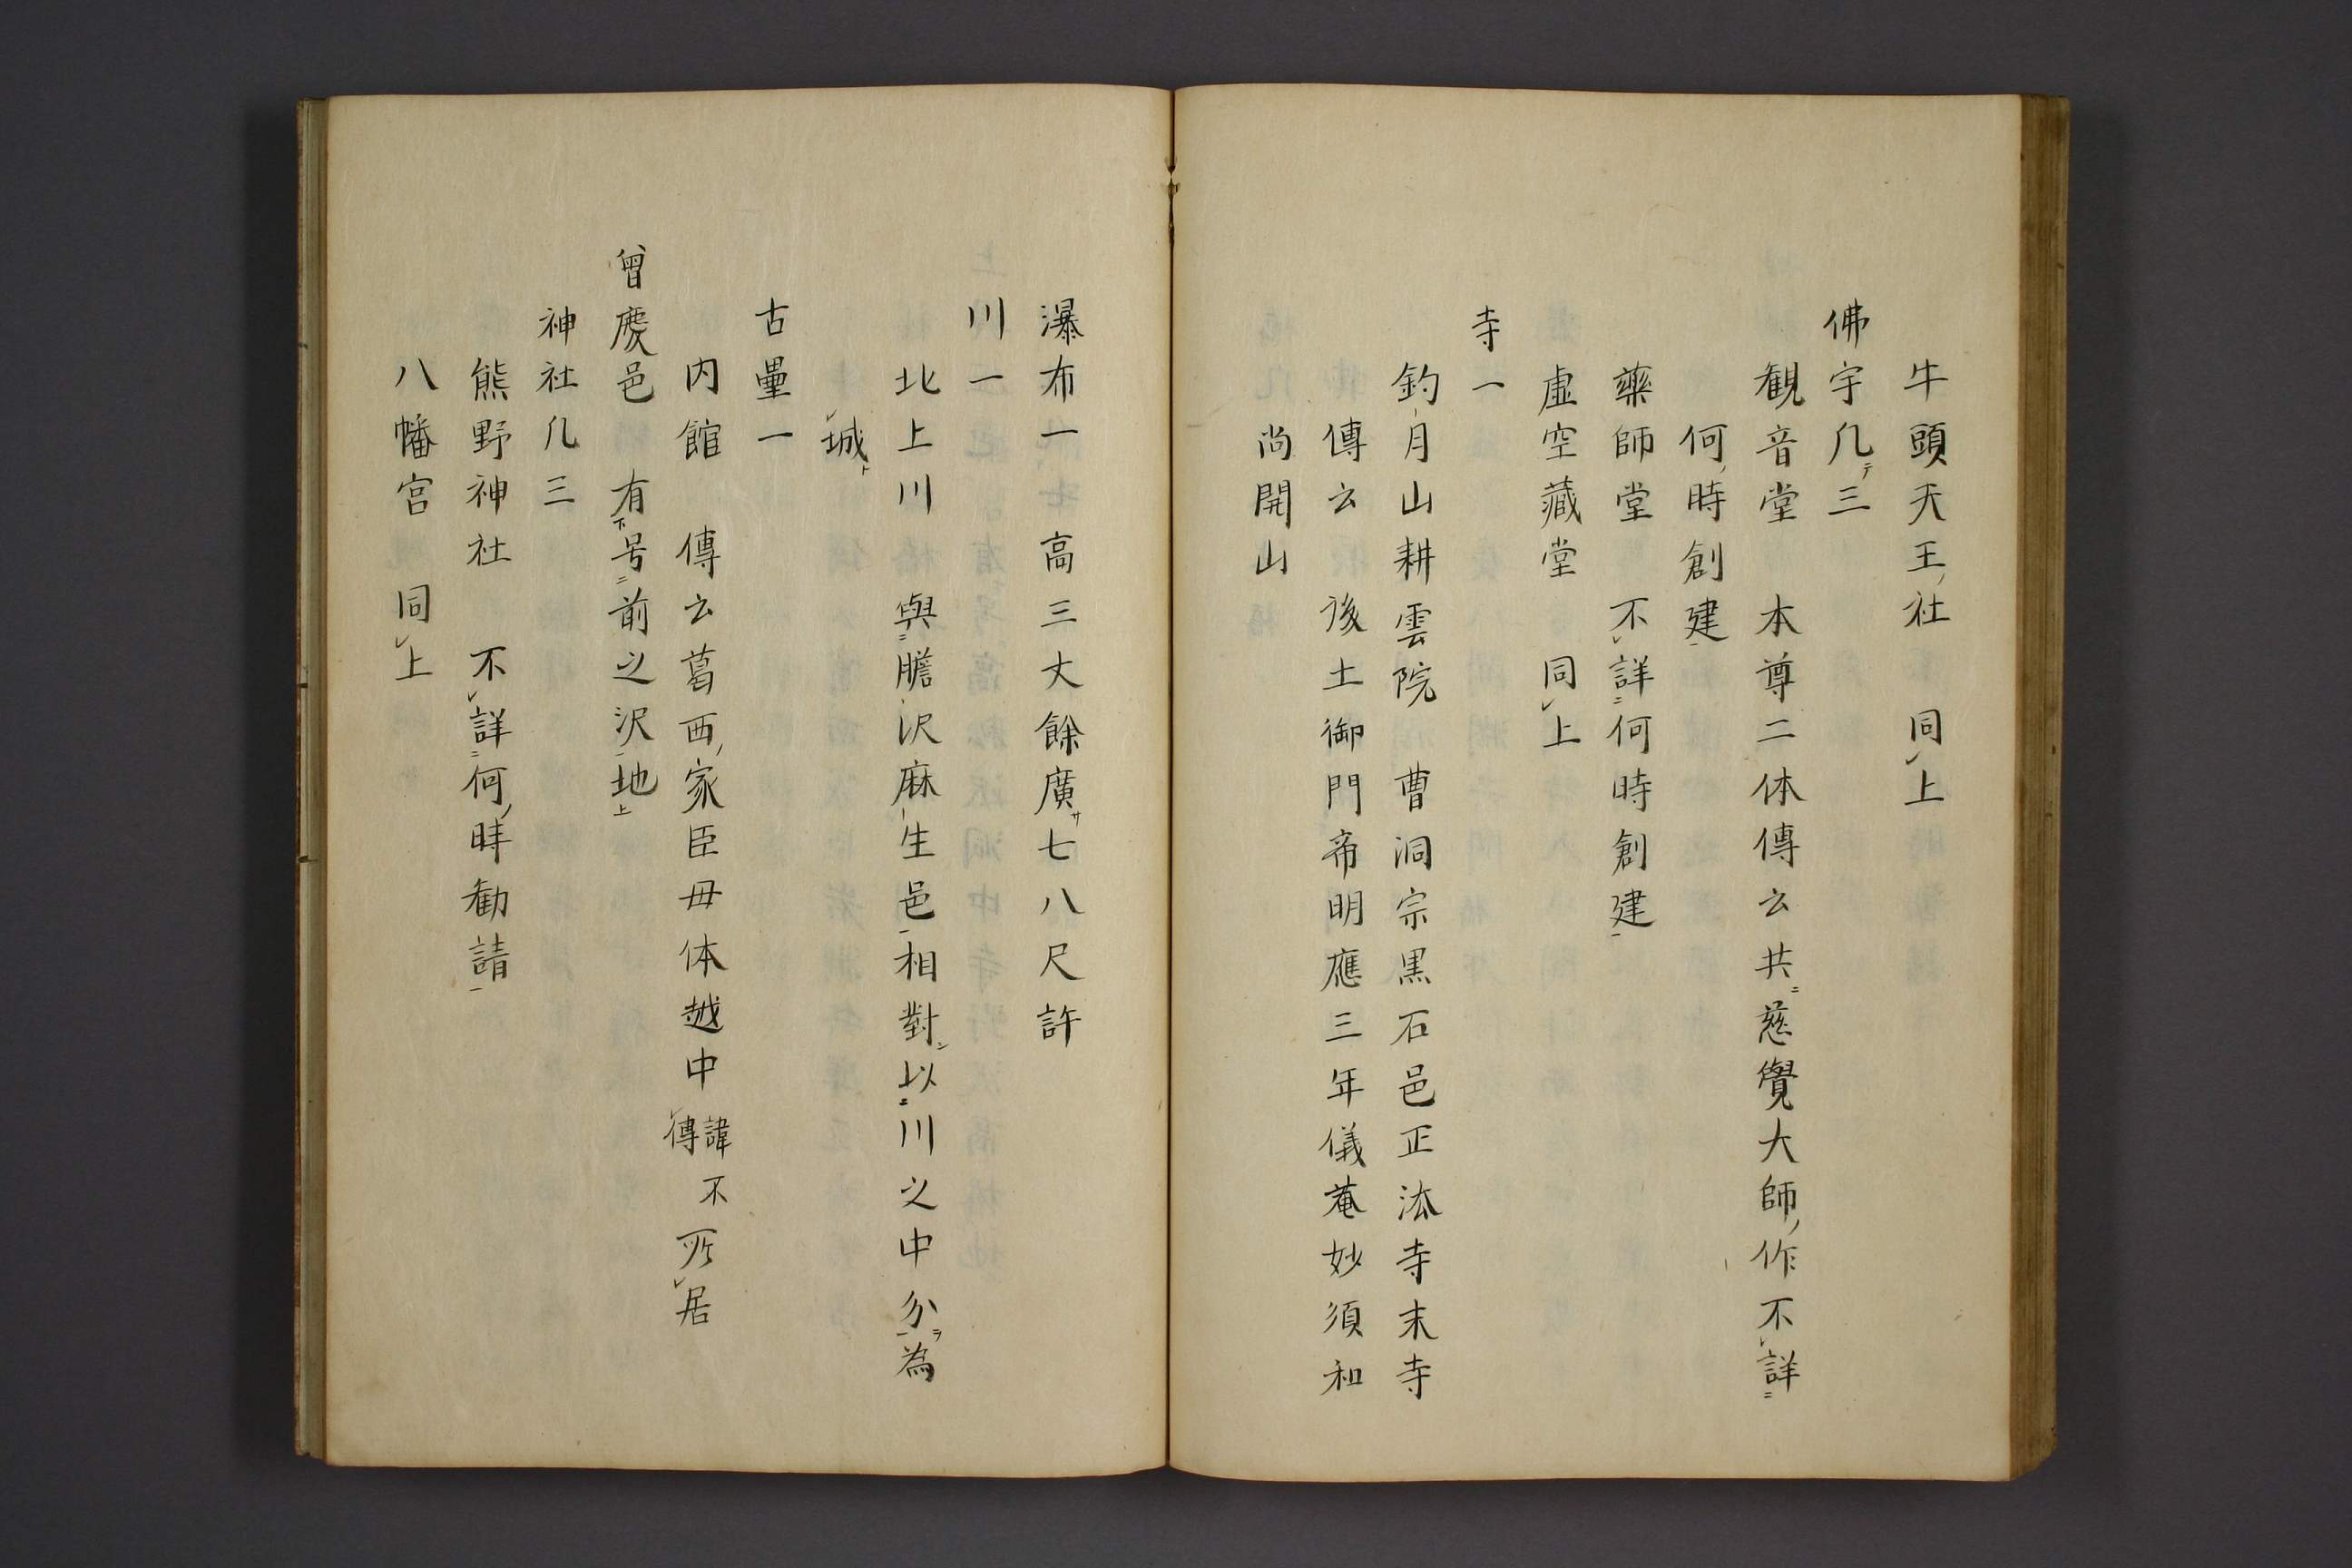 牛頭天王ノ社　同レ上
佛宇凡テ三
観音堂　本尊二体傳云共ニ慈覺大師ノ作不レ詳ニ
何ノ時創建一
藥師堂　不レ詳ニ何時創建一
虚空藏堂　同レ上
寺一
釣月山耕雲院　曹洞宗黒石邑正法寺末寺
傳云　後土御門帝明應三年儀菴妙須和
尚開山
瀑布一　高三丈餘廣サ七八尺許
川一
北上川　與ニ膽沢麻生邑一相對シ以ニ川之中分ヲ一為
レ城ト
古壘一
内館　傳云葛西ノ家臣毋体越中諱不レ傳所レ居
曾慶邑　有下号ニ前之沢一地上
神社凡三
熊野神社　不レ詳ニ何ノ時勧請一
八幡宮　同レ上